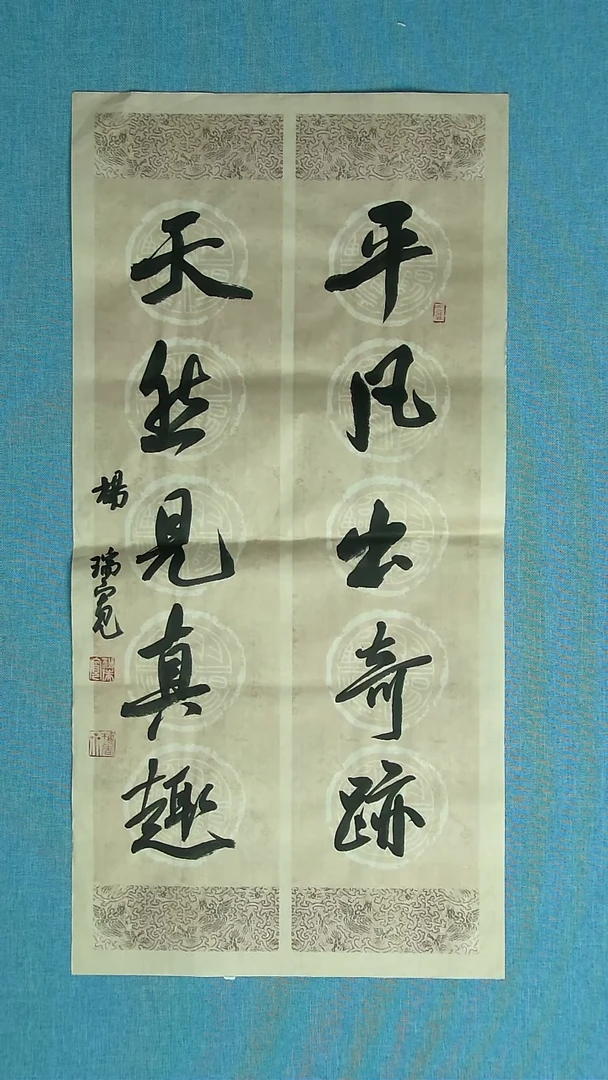 平凡出奇跡
天然見真趣
楊瑞寬